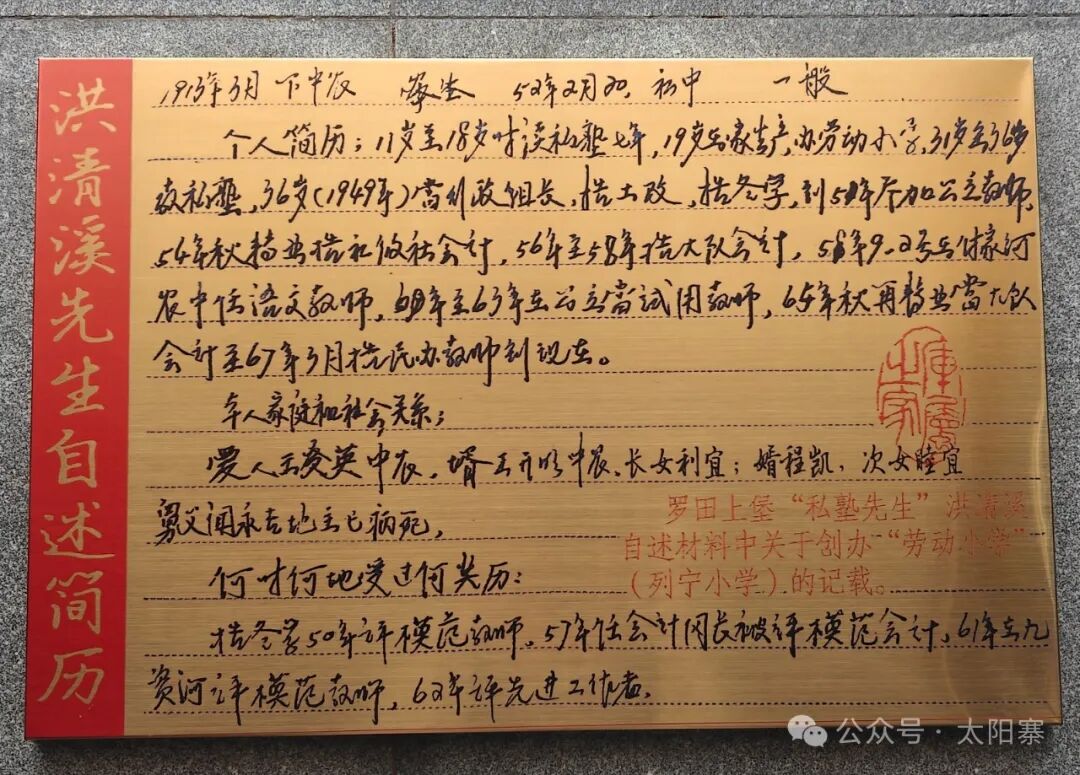 洪清溪先生自述简历
1913年3月 下中农 52年2月 初中 一般
个人简历：11岁至18岁时读私塾七年，19岁在家生产，办劳动小学，31岁至36岁
教私塾，36岁（1949年）当行政组长，搞土改，搞冬学，到51年参加公立教师，
54年秋转业搞初级社会计，56年至58年搞大队会计，58年9-2号去付家河
农中任语文教师，年至63年在公立当试用教师，65年秋再转业当大队
会计至67年3月搞民办教师到现在。
本人家庭和社会关系；
爱人王爱英中农，婿王开明中农、长女利宜；婿程凯，次女睦宜
舅父闻永吉地主已病死，
罗田上堡“私塾先生”洪清溪
自述材料中关于创办“劳动小学”
（列宁小学）的记载。
何时何地受过何奖历：
搞冬学50年评模范教师，57年任会计被评模范会计，61年在九
资河评模范教师，62年评先进工作者，
公众号·太阳寨